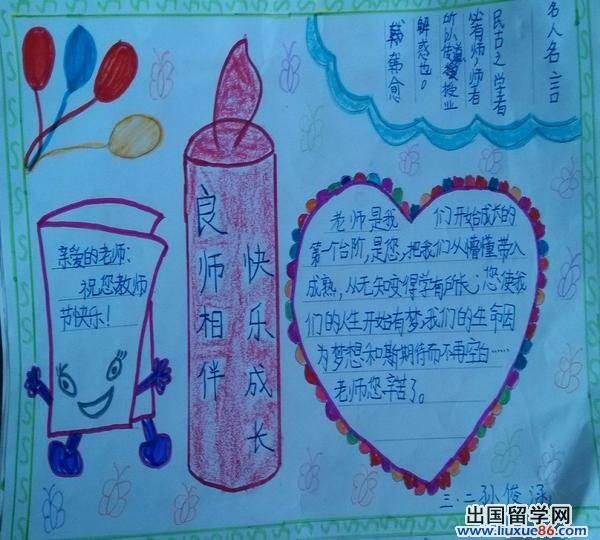 名人名言
民古之学者
必有师,师者
所以传道授业
解惑也。
韩韩愈
亲爱的老师:
祝您教师
节快乐!
良师相伴
快乐成长
老师是我们开始成长的
第一个台阶,是您,把我们从懵懂带入
成熟,从无知变得学有所长;您使我
们的人生开始有梦,我们的生命因
为梦想和斯期待而不再空白……
老师您辛苦了。
三.二孙俊涵
出国留学网
www.liuxue86.com